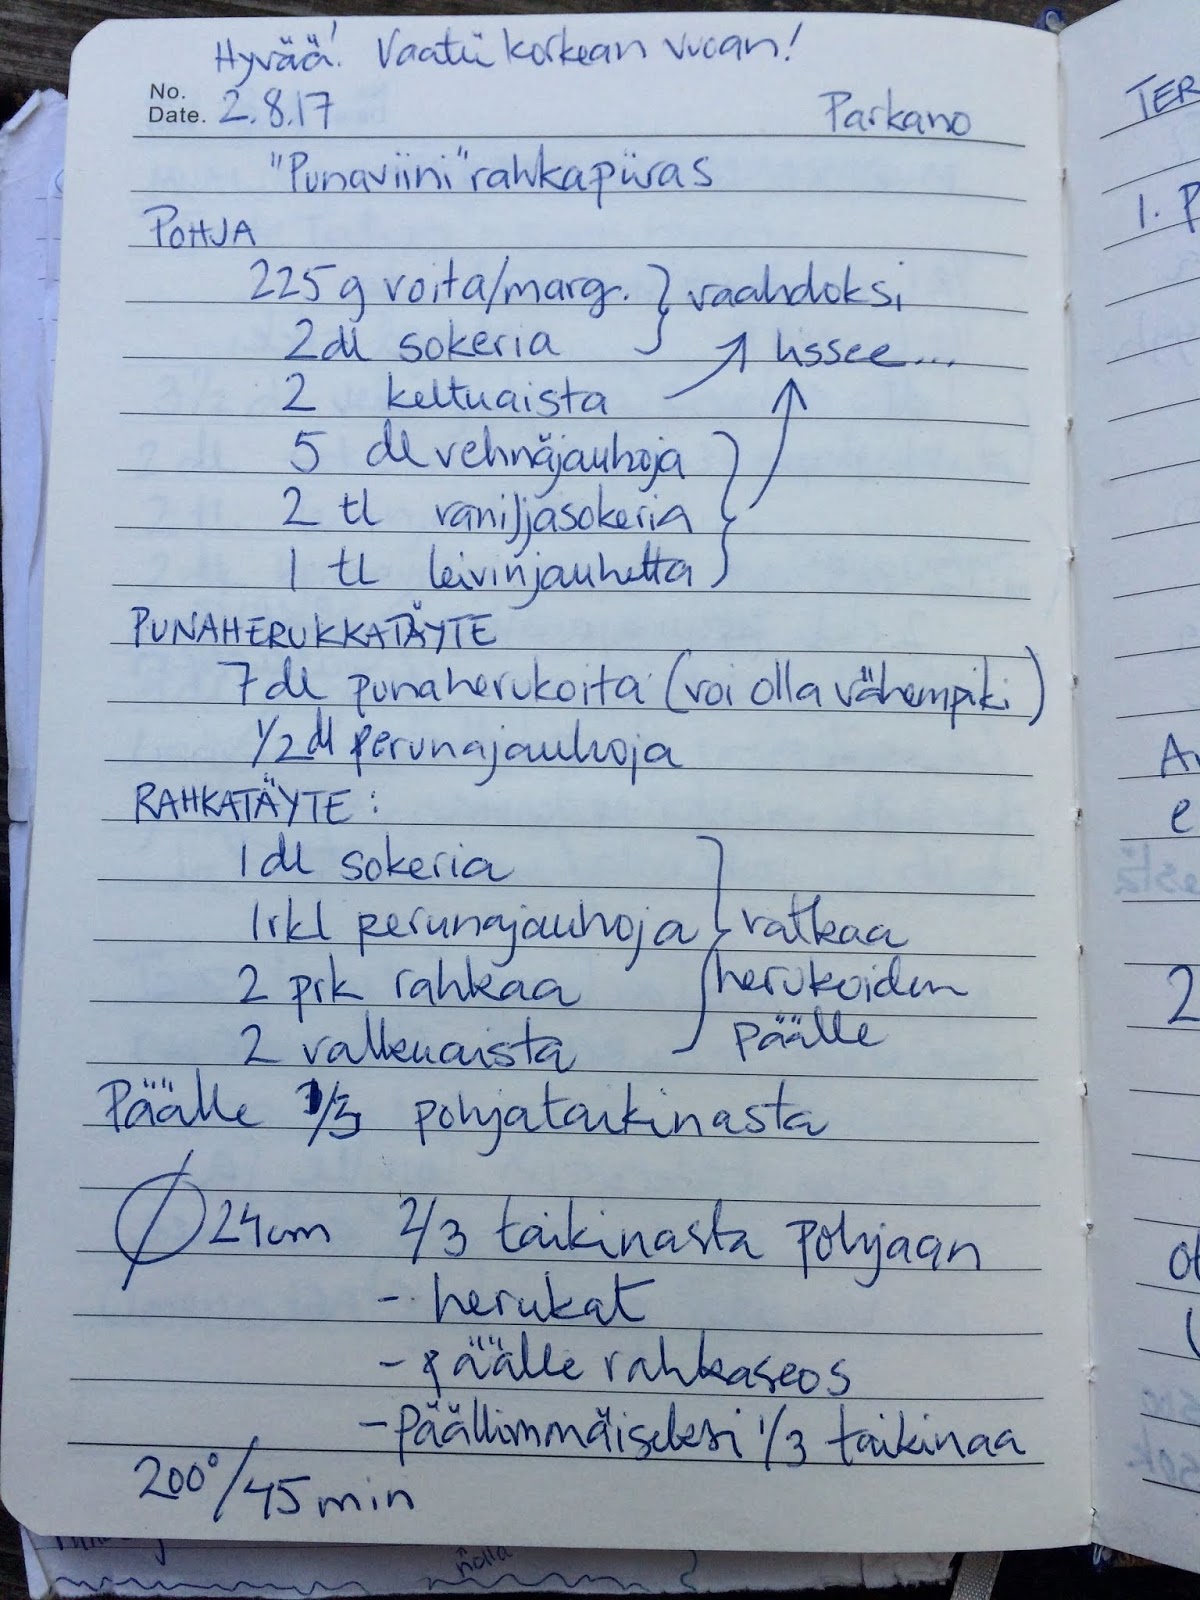 Hyvää! Vaatii korkean vuoan!
No.
Date. 2.8.17 Parkano
"Punaviini"rahkapiiras
POHJA
225 g voita/marg. } vaahdoksi
2 dl sokeria lissee...
2 keltuaista
5 dl vehnäjauhoja
2 tl vaniljasokeria
1 tl leivinjauhetta
PUNAHERUKKATÄYTE
7 dl punaherukoita (voi olla vähempiki)
1/2 dl perunajauhoja
RAHKATÄYTE:
1 dl sokeria
1 rkl perunajauhoja } vatkaa
2 prk rahkaa herukoiden
2 valkuaista päälle
Päälle 1/3 pohjataikinasta
Ø 24cm 2/3 taikinasta pohjaan
- herukat
- päälle rahkaseos
- päällimmäiseksi 1/3 taikinaa
200°/45 min
nolla
TER
1. P
A
e
2